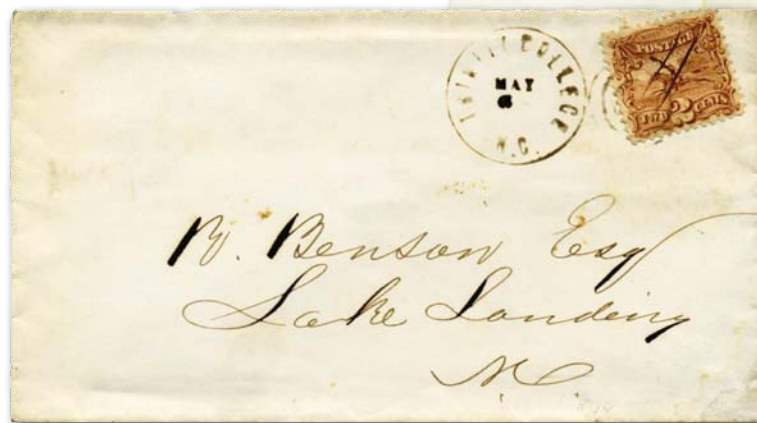 TRINITY COLLEGE
MAY
6
N.C.
POSTAGE
TWO 2 CENTS
B. Benson Esq
Lake Landing
NC